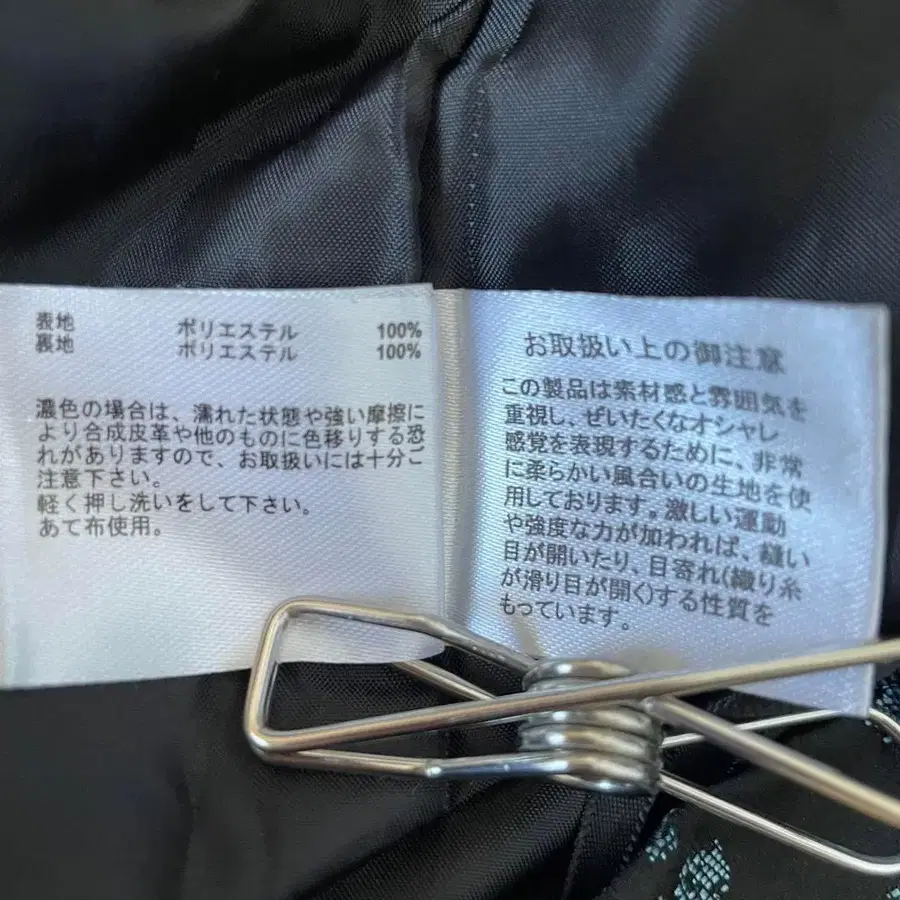 表地 ポリエステル 100%
裏地 ポリエステル 100%
濃色の場合は、濡れた状態や強い摩擦に
より合成皮革や他のものに色移りする恐
れがありますので、お取扱いには十分ご
注意下さい。
軽く押し洗いをして下さい。
あて布使用。
お取扱い上の御注意
この製品は素材感と雰囲気を
重視し、ぜいたくなオシャレ
感覚を表現するために、非常
に柔らかい風合いの生地を使
用しております。激しい運動
や強度な力が加われば、縫い
目が開いたり、目寄れ(織り糸
が滑り目が開く)する性質を
もっています。